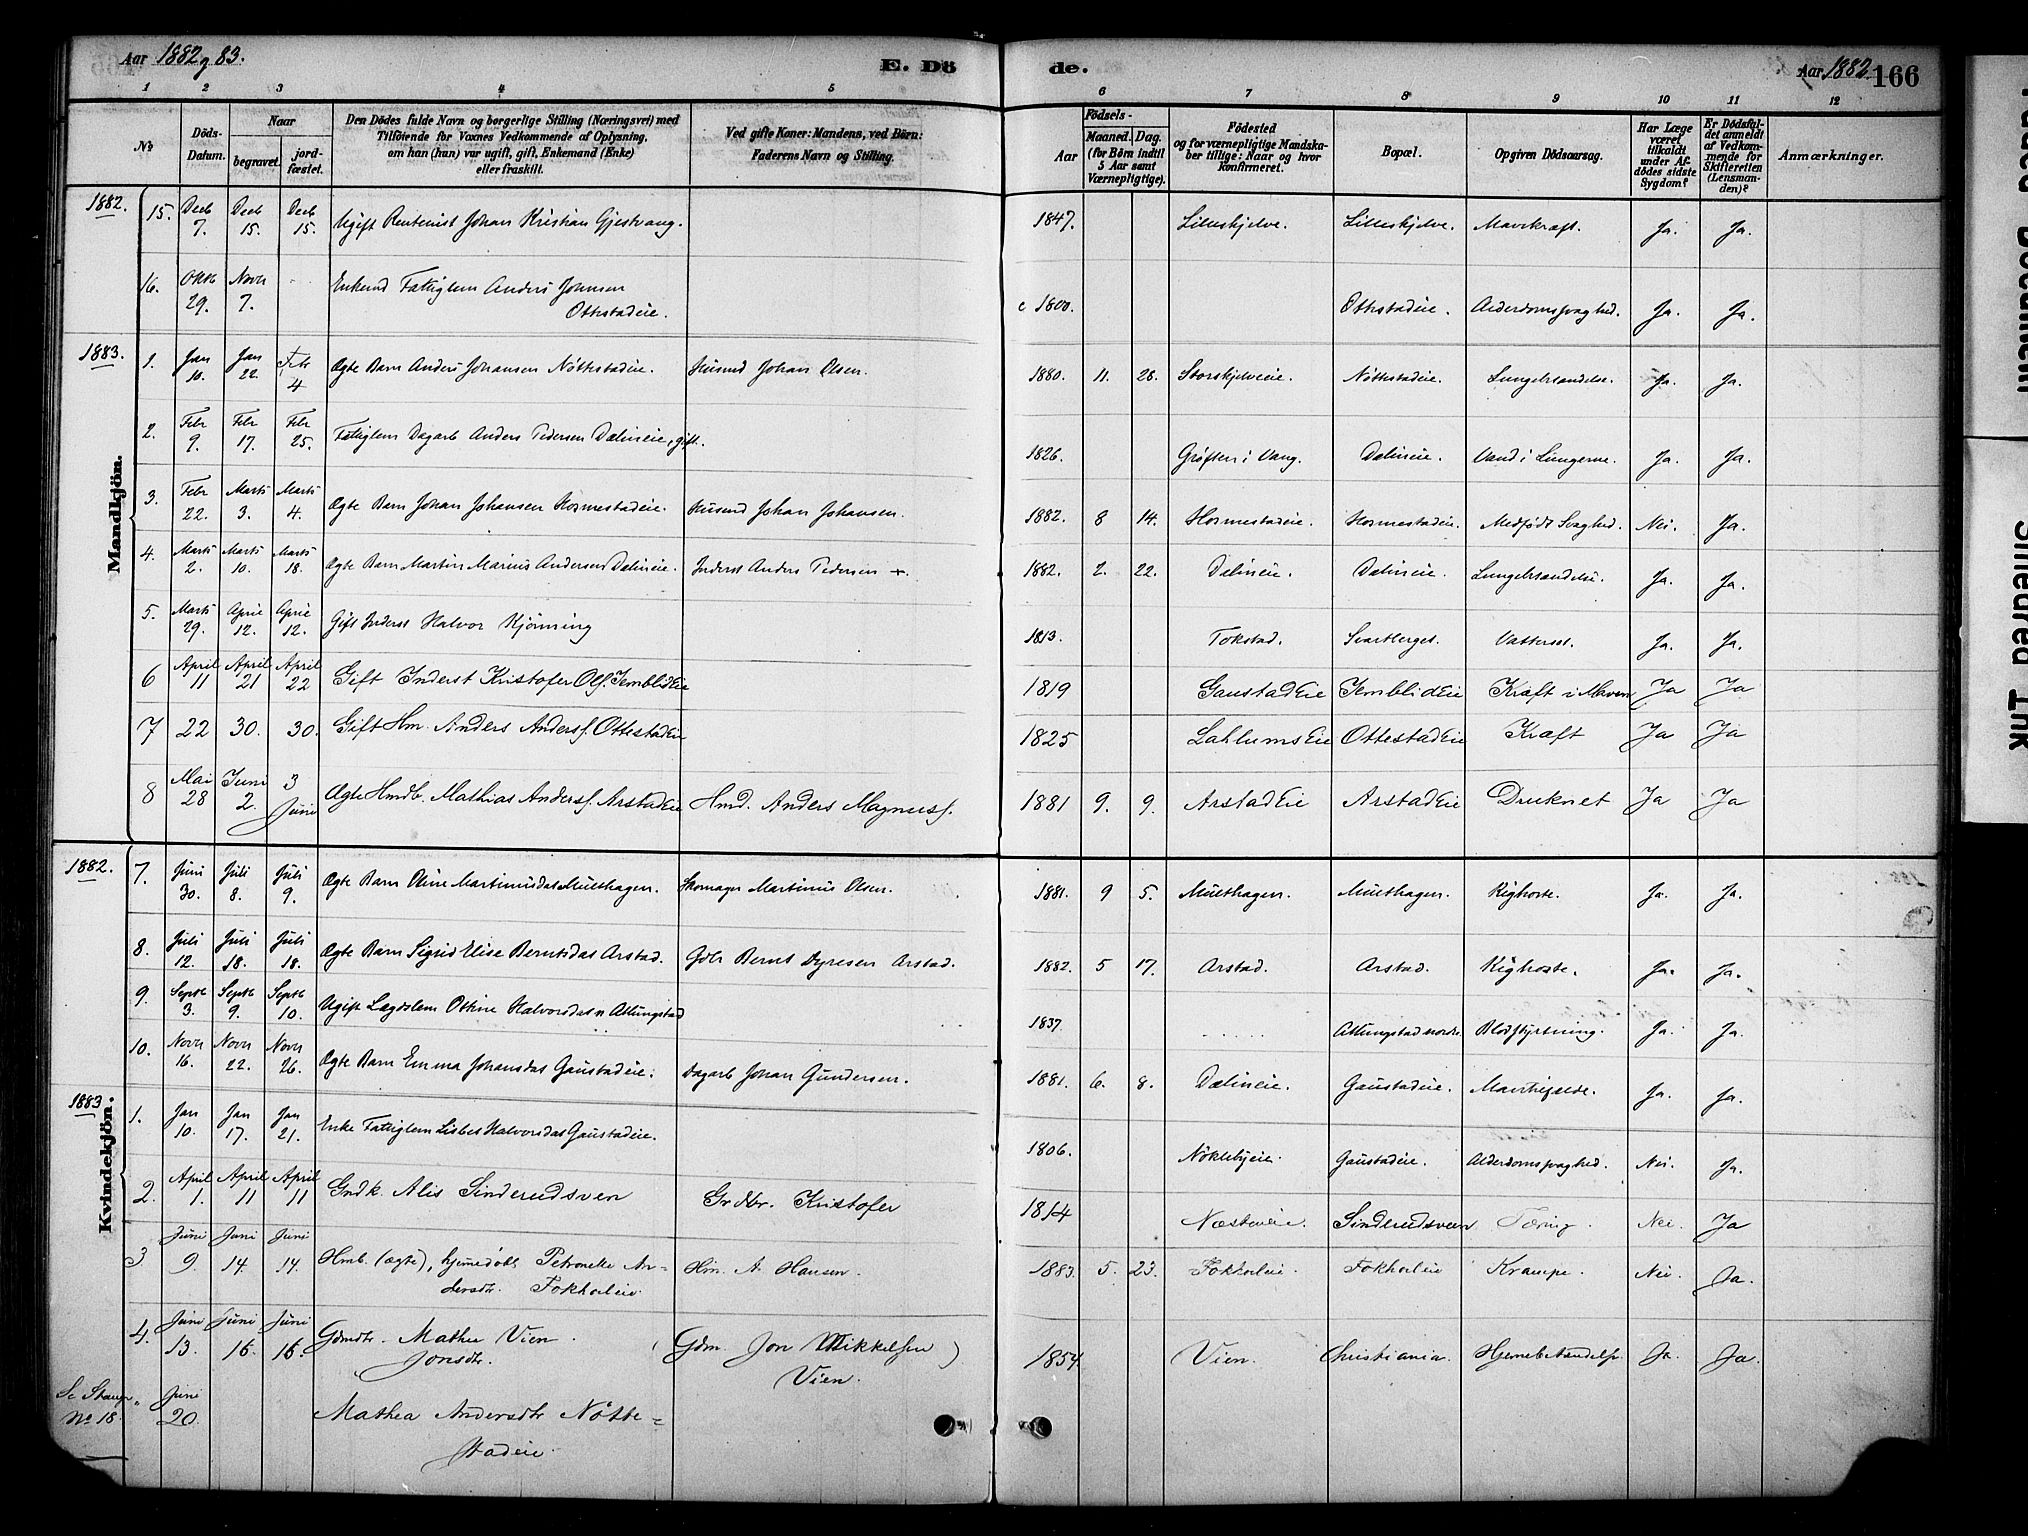 Aar 1882 og 83.
E. Dö
de.
Aar 1882
166
1 2 3 4 5 6 7 8 9 10 11 12
No
Döds-Datum.
Naar
begravet.
jord-fæstet.
Den Dödes fulde Navn og borgerlige Stilling (Næringsvei) med
Tilföiende for Voxnes Vedkommende af Oplysning,
om han (hun) var ugift, gift, Enkemand (Enke)
eller fraskilt.
Ved gifte Koner: Mandens, ved Börn:
Faderens Navn og Stilling.
Födsels-
Aar
Maaned. Dag.
(for Börn indtil
5 Aar samt
Værnepligtige).
Födested
og for værnepligtige Mandska-
ber tillige: Naar og hvor
konfirmeret.
Bopæl.
Opgiven Dödsaarsag.
Har Læge
været
tilkaldt
under Af-
dödes sidste
Sygdom?
Er Dödsfal-
det anmeldt
af Vedkom-
mende for
Skifteretten
(Lensman-
den)?
Anmærkninger.
Mandkjön.
1882.
15. Decb 7. Decb 15. Decb 15. Ugift Rentenist Johan Kristian Gjestvang. 1847. Lilleskjelve. Lilleskjelve. Mavekræft. Ja. Ja.
16. Oktb 29. Novr 7. Enkemd Fattiglem Anders Jonsen
Ottestadeie. c 1800. Ottestadeie. Alderdomssvaghed. Ja. Ja.
1883.
1. Jan 10. Jan 22. Febr 4 Ægte Barn Anders Johansen Nöttestadeie. Husmd Johan Olsen. 1880. 11. 28. Storskjelveeie. Nöttestadeie. Lungebetændelse. Ja. Ja.
2. Febr 9. Febr 17. Febr 25. Fattiglem Dagarb Anders Pedersen Dælineie, gift. 1826. Gröften i Vang. Dælineie. Vand i Lungerne. Ja. Ja.
3. Febr 22. Marts 3. Marts 4. Ægte Barn Johan Johansen Hormestadeie. Husmd Johan Johansen. 1882. 8 14. Hormestadeie. Hormestadeie. Medfödt Svaghed. Nei. Ja.
4. Marts 2. Marts 10. Marts 18. Ægte Barn Martin Marius Andersen Dælineie. Inderst Anders Pedersen +. 1882. 2. 22. Dælineie. Dælineie. Lungebetændelse. Ja. Ja.
5. Marts 29. April 12. April 12. Gift Inderst Halvor Kjönning 1813. Tokstad. Svartberget. Vattersot. Ja. Ja.
6 April 11 April 21 April 22 Gift Inderst Kristofer Ols. JemblidEie 1819 GaustadEie JemblidEie Kræft i Maven Ja Ja
7 22 30. 30. Gift Hm. Anders Anders. OttestadEie 1825 LahlumsEie OttestadEie Kræft Ja Ja
8 Mai 28 Juni 2. 3 Juni Ægte Hmdb. Mathias Anders. ArstadEie Hmd. Anders Magnus. 1881 9. 9. ArstadEie ArstadEie Druknet Ja Ja
Kvindekjön.
1882.
7. Juni 30. Juli 8. Juli 9. Ægte Barn Oline Martinusdas Multhagen. Skomager Martinus Olsen. 1881. 9 5. Multhagen. Multhagen. Kighoste. Ja. Ja.
8. Juli 12. Juli 18. Juli 18. Ægte Barn Sigrid Elise Berntsdas Arstad. Gdbr Bernt Dyresen Arstad. 1882. 5 17. Arstad. Arstad. Kighoste. Ja. Ja.
9. Septb 3. Septb 9. Septb 10. Ugift Lægdslem Ottine Halvorsdas n Atlungstad 1837. Atlungstad nordre. Blodstyrtning. Ja. Ja.
10. Novr 16. Novr 22. Novr 26. Ægte Barn Emma Johansdas Gaustadeie. Dagarb Johan Gundersen. 1881. 6. 8. Dælineie. Gaustadeie. Ja. Ja.
1883
1. Jan 10. Jan 17. Jan 21. Enke Fattiglem Lisbet Halvorsdas Gaustadeie. 1806. Nöklebyeie. Gaustadeie. Alderdomssvaghed. Nei. Ja.
2. April 1. April 11 April 11 Gmdk. Alis Sinderudsven Grdbr. Kristofer 1814 Næsteneie. Sinderudsveen Tæring. Nei. Ja
3 Juni 9. Juni 14. Juni 14. Hmb. (ægte), hjemedöbt Petronelle An-
dersdtr. Fokholeie. Hm. A. Hansen. 1883. 5. 23. Fokholeie. Fokholeie Krampe. Nei. Ja.
4. Juni 13. Juni 16. Juni 16. Gdmdtr. Mathea Vien.
Jonsdtr. (Gdm. Jon Mikkelsen)
Vien. 1854 Vien. Christiania. Hjernebetændelse Ja. Ja.
Se Stange
No 18. Juni 20. Mathea Andersdtr Nötte-
stadeie.